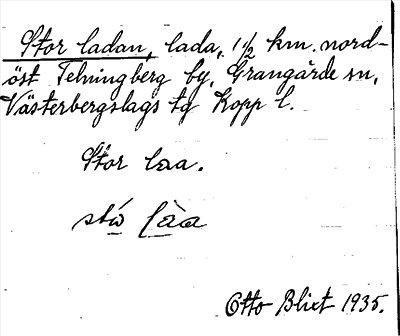 Stor ladan, lada, 1½ km. nord-
öst Telningberg by, Grangärde sn,
Västerbergslags tg Kopp l.
Stor laa.
stó làa
Otto Blixt 1935.